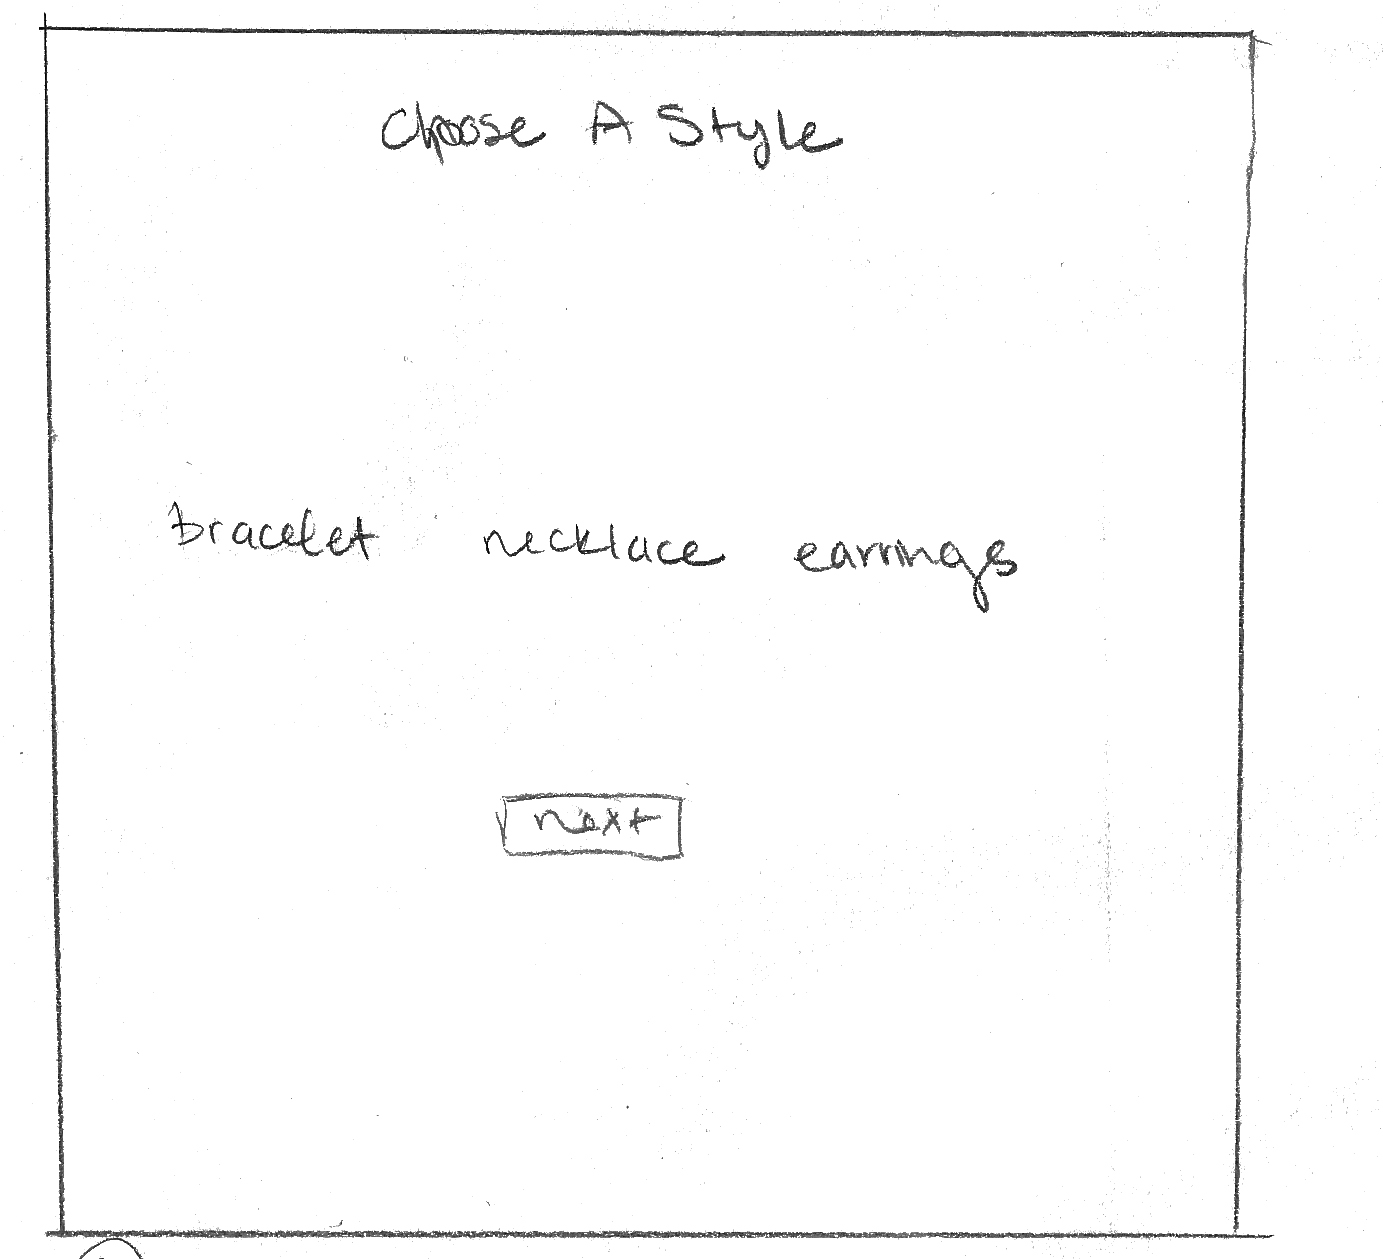 Choose A Style
bracelet necklace earrings
next